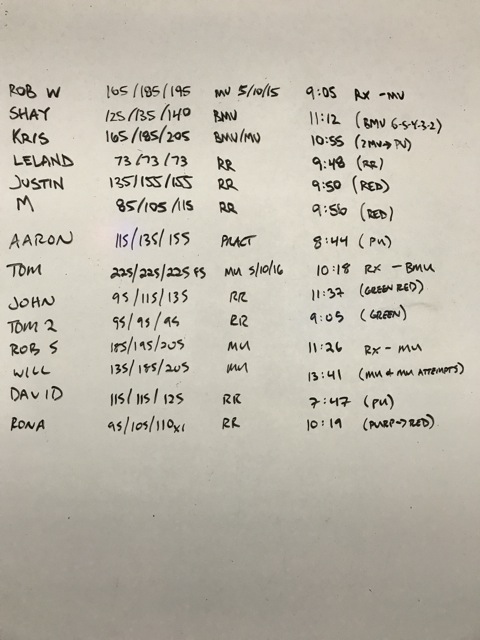 ROB W 165/185/195 MU 5/10/15 9:05 RX -MU
SHAY 125/135/140 BMU 11:12 (BMU 6-5-4-3-2)
KRIS 165/185/205 BMU/MU 10:55 (2MU→PU)
LELAND 73/73/73 RR 9:48 (RR)
JUSTIN 135/155/155 RR 9:50 (RED)
M 85/105/115 RR 9:56 (RED)
AARON 115/135/155 PRACT 8:44 (PU)
TOM 225/225/225 FS MU 5/10/16 10:18 RX -BMU
JOHN 95/115/135 RR 11:37 (GREEN RED)
TOM 2 95/95/95 RR 9:05 (GREEN)
ROB S 185/195/205 MU 11:26 RX-MU
WILL 135/185/205 MU 13:41 (MU & MU ATTEMPTS)
DAVID 115/115/125 RR 7:47 (PU)
RONA 95/105/110x1 RR 10:19 (PURP→RED)